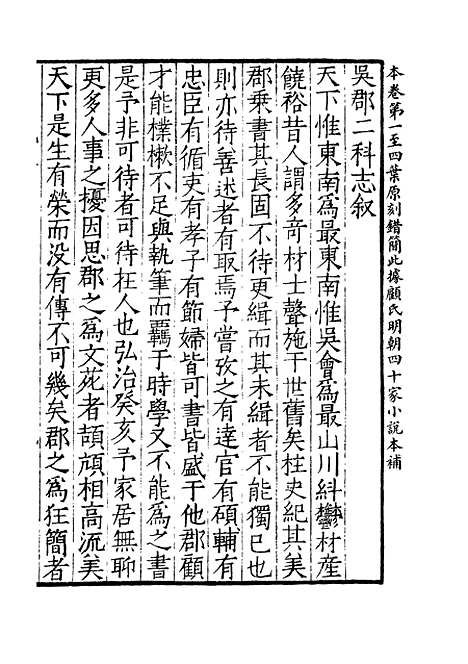 本卷第一至四葉原刻錯簡此據顧氏明朝四十家小說本補
吳郡二科志叙
天下惟東南為最東南惟吳會為最山川糾鬱材産
饒裕昔人謂多竒材士聲施于世舊矣柱史紀其美
郡乗書其長固不待更緝而其未緝者不能獨已也
則亦待善述者有取焉予嘗攷之有達官有碩輔有
忠臣有循吏有孝子有節婦皆可書皆盛于他郡顧
才能樸樕不足與執筆而覊于時學又不能為之書
是予非可待者可待在人也弘治癸亥予家居無聊
更多人事之擾因思郡之為文苑者頡頏相高流美
天下是生有榮而没有傳不可幾矣郡之為狂簡者